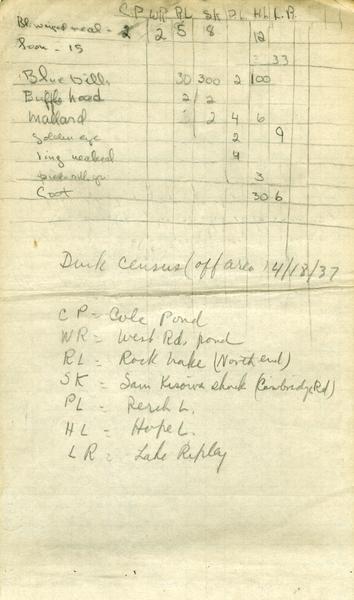 C P WR RL SK PL HL L.R.
Bl. winged teal - 2 2 5 8 12
15 33
Blue bills 30 300 2 100
Buffle head 2 2
Mallard 2 4 6
Golden eye 2 9
ring necked 4
3
Coot 30 6
Duck census (off area) 4/18/37
C P = Cole Pond
WR = West Rds. pond
RL = Rock Lake (North end)
SK = Sam Kisow's shack (Cambridge Rd)
PL = L.
HL = Hope L.
L R = Lake Ripley